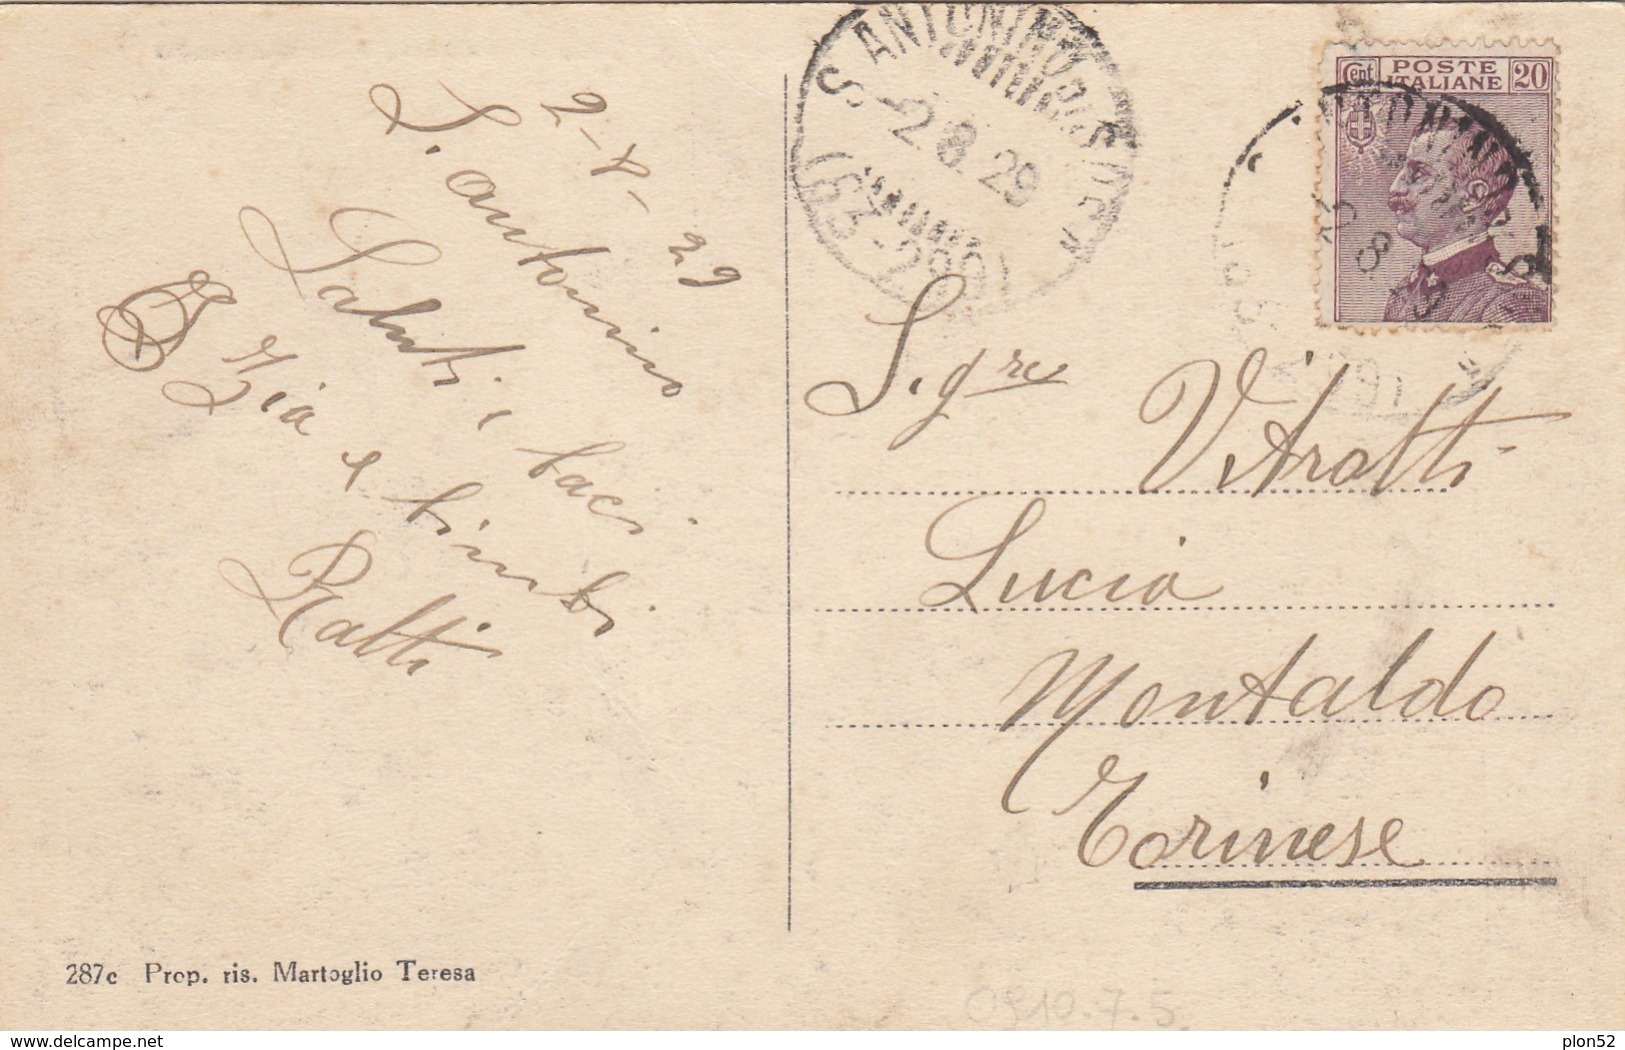 2-8-29
S. Antonino
Saluti e baci
Zia e bimbi
Ratti
S ANTONINO
-2.8.29
(53-269)
Cent POSTE ITALIANE 20
Sigre Vitratti
Lucia
Montaldo
Torinese
287c Prop. ris. Martoglio Teresa
0910.7.5.
delcampe.net
plon52